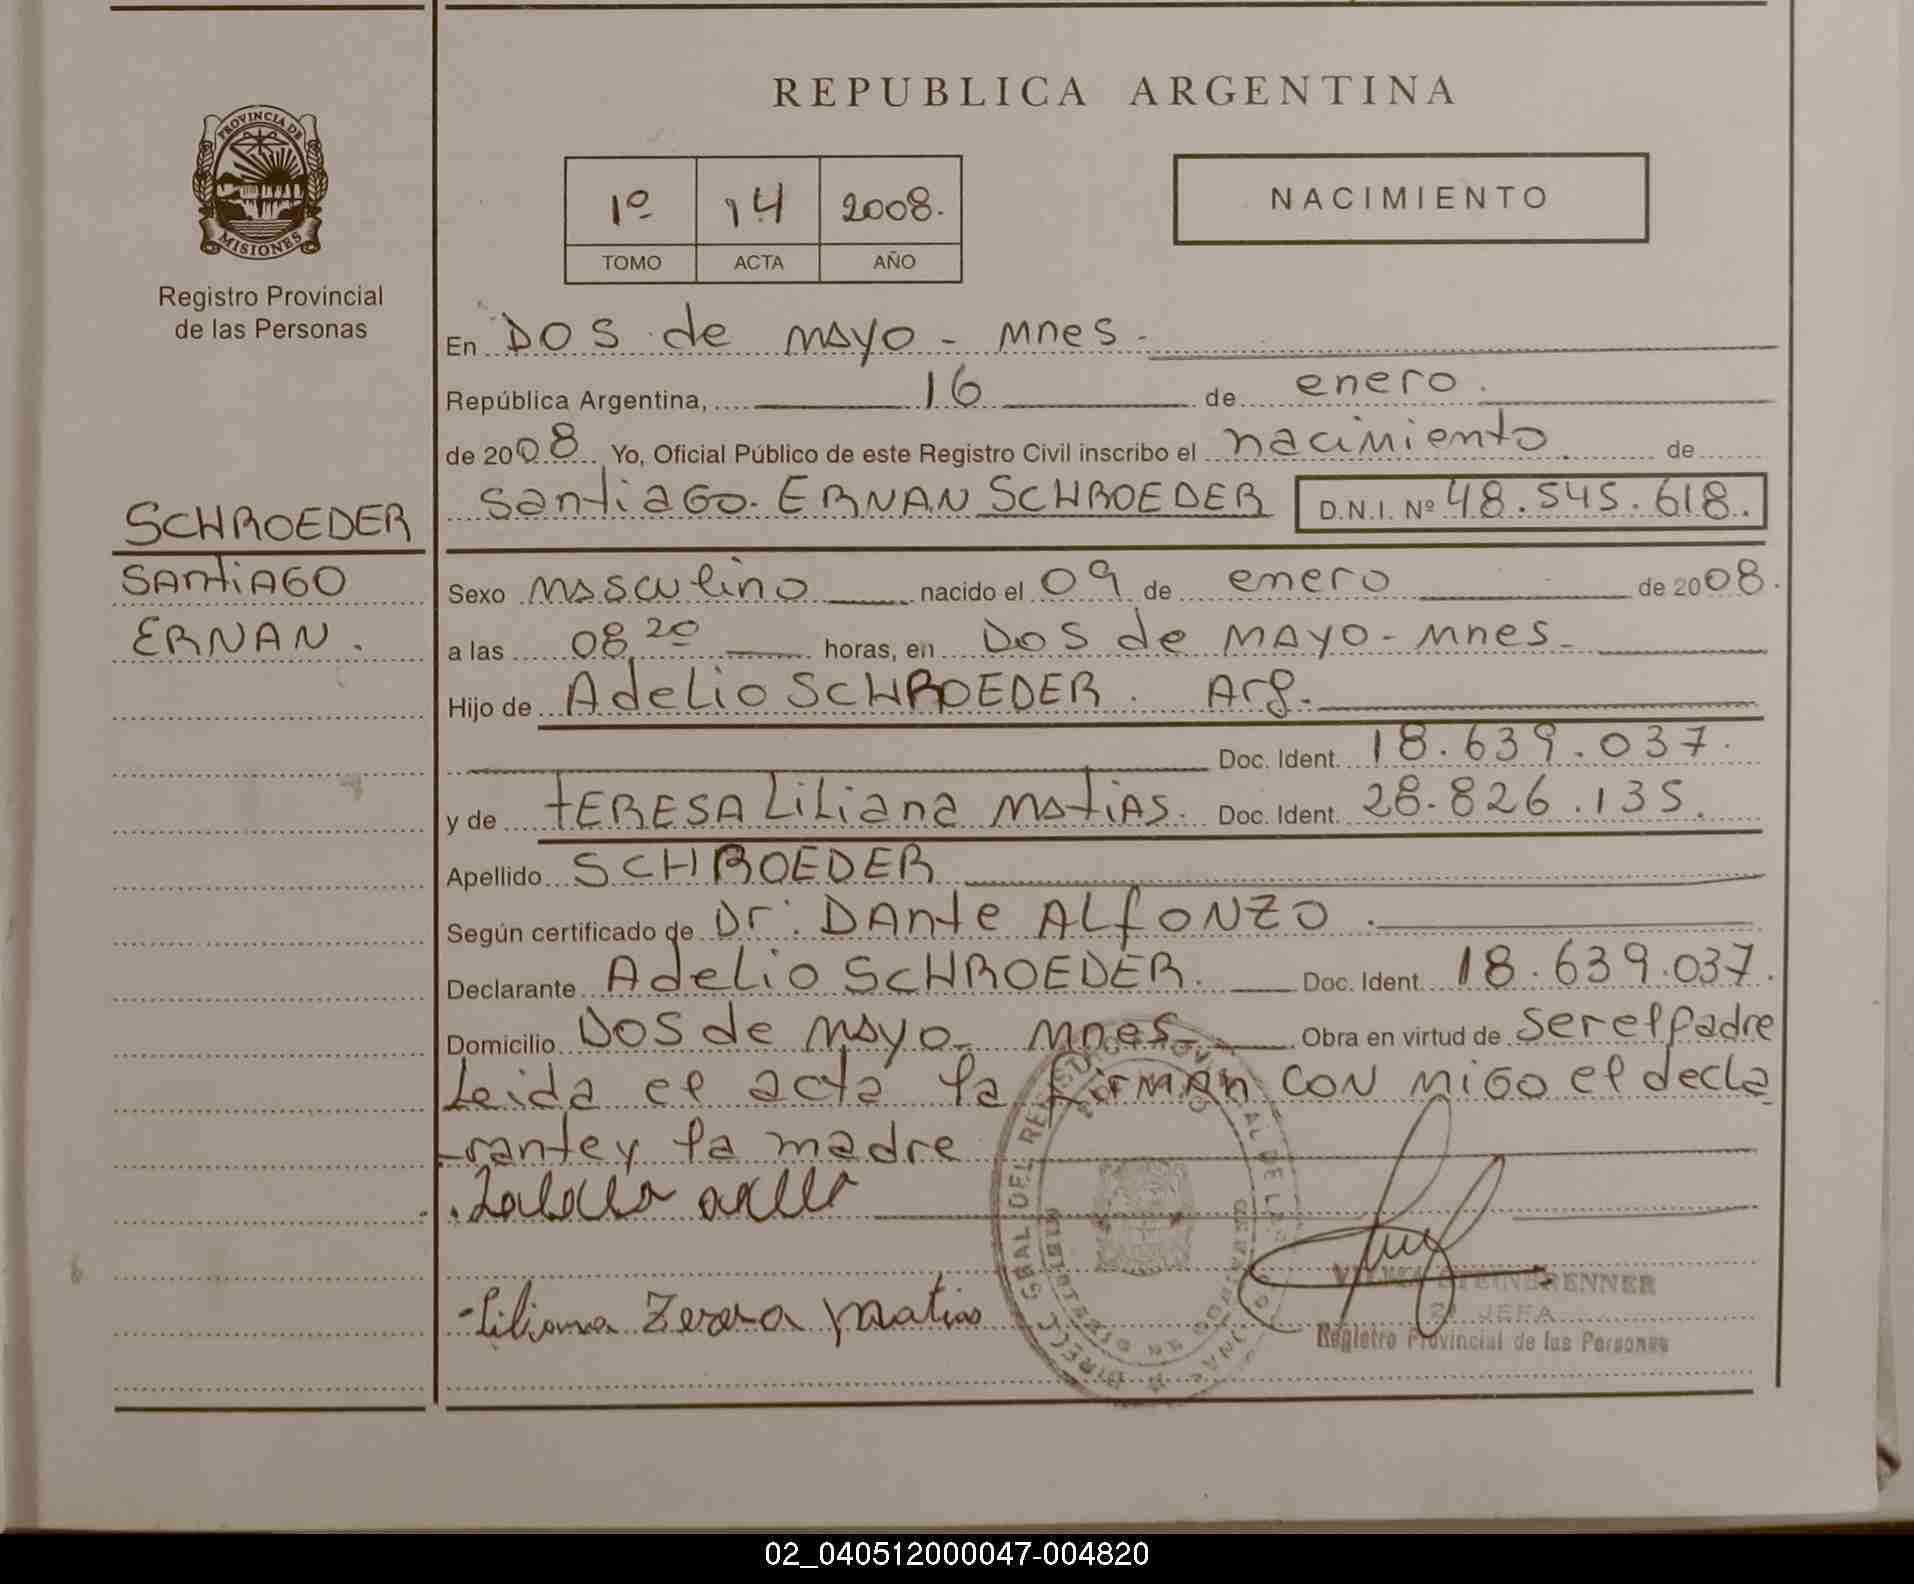 REPUBLICA ARGENTINA
PROVINCIA DE
MISIONES
Registro Provincial
de las Personas
1º 14 2008.
TOMO ACTA AÑO
NACIMIENTO
SCHROEDER
SANTIAGO
ERNAN.
En DOS de MAYO - Mnes-
República Argentina, 16 de enero.
de 2008 Yo, Oficial Público de este Registro Civil inscribo el nacimiento de
SantiaGO. ERNAN SCHROEDER D.N.I. Nº 48.545.618.
Sexo MASCULINO nacido el 09 de enero de 2008.
a las 08,20 horas, en DOS de MAYO - Mnes-
Hijo de Adelio SCHROEDER. Arg.
Doc. Ident. 18.639.037.
y de TERESA LiLiana MATIAS. Doc. Ident. 28.826.135.
Apellido SCHROEDER
Según certificado de Dr: DANTE ALFONZO.
Declarante Adelio SCHROEDER. Doc. Ident. 18.639.037.
Domicilio DOS de MAYO - Mnes- Obra en virtud de ser el padre
Leida el acta la firman CON MIGO el decla
-rante y la madre
-Liliana Matias
STEINBRENNER
JEFA
Registro Provincial de las Personas
02_040512000047-004820